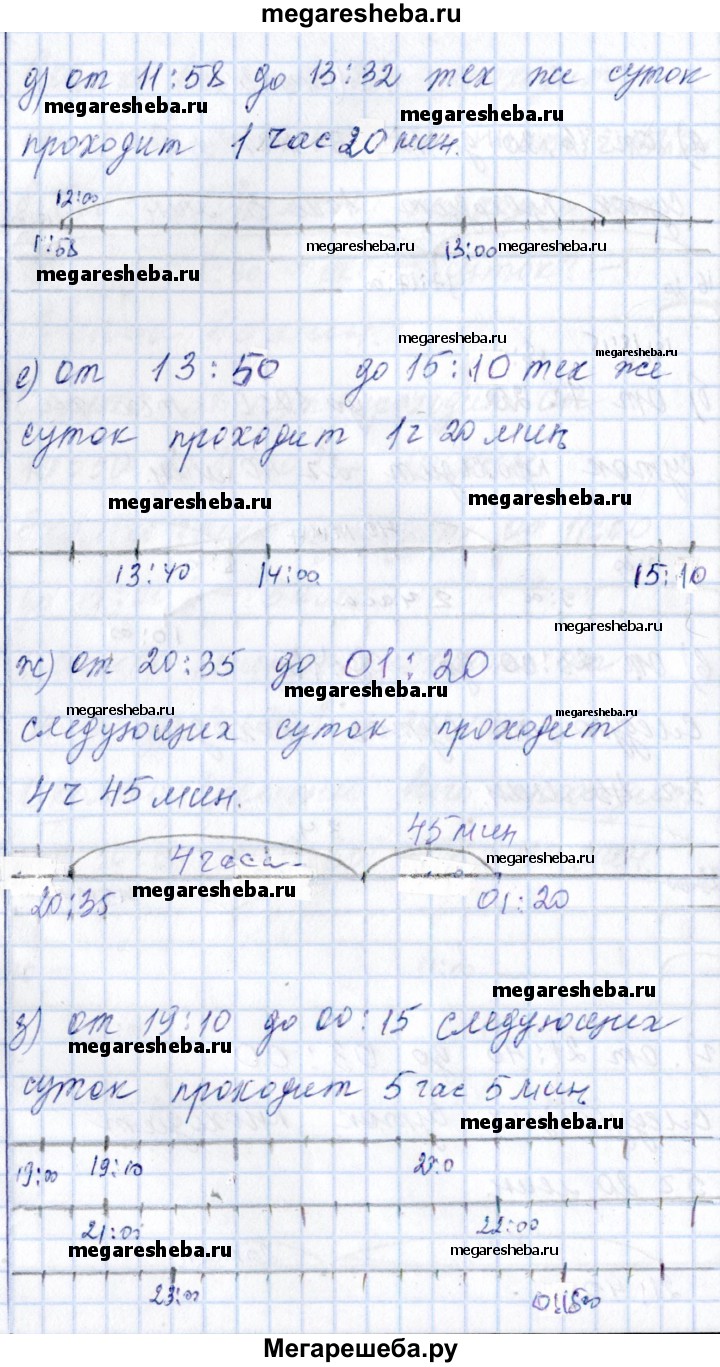 megaresheba.ru
д) от 11:58 до 13:32 тех же суток
megaresheba.ru megaresheba.ru
проходит 1 час 20 мин.
12:00
megaresheba.ru megaresheba.ru
:58 13:00
megaresheba.ru
megaresheba.ru
megaresheba.ru
е) от 13:50 до 15:10 тех же
суток проходит 1ч 20 мин
megaresheba.ru megaresheba.ru
13:40 14:00 15:10
megaresheba.ru
ж) от 20:35 до 01:20
megaresheba.ru
megaresheba.ru megaresheba.ru
следующих суток проходит
4ч 45 мин.
45 мин
4 часа
megaresheba.ru
megaresheba.ru
20:35 01:20
megaresheba.ru
з) от 19:10 до 00:15 следующих
megaresheba.ru
суток проходит 5 час 5 мин
megaresheba.ru
19:00 19:10
21:00 22:00
megaresheba.ru megaresheba.ru
23:00
Мегарешеба.ру